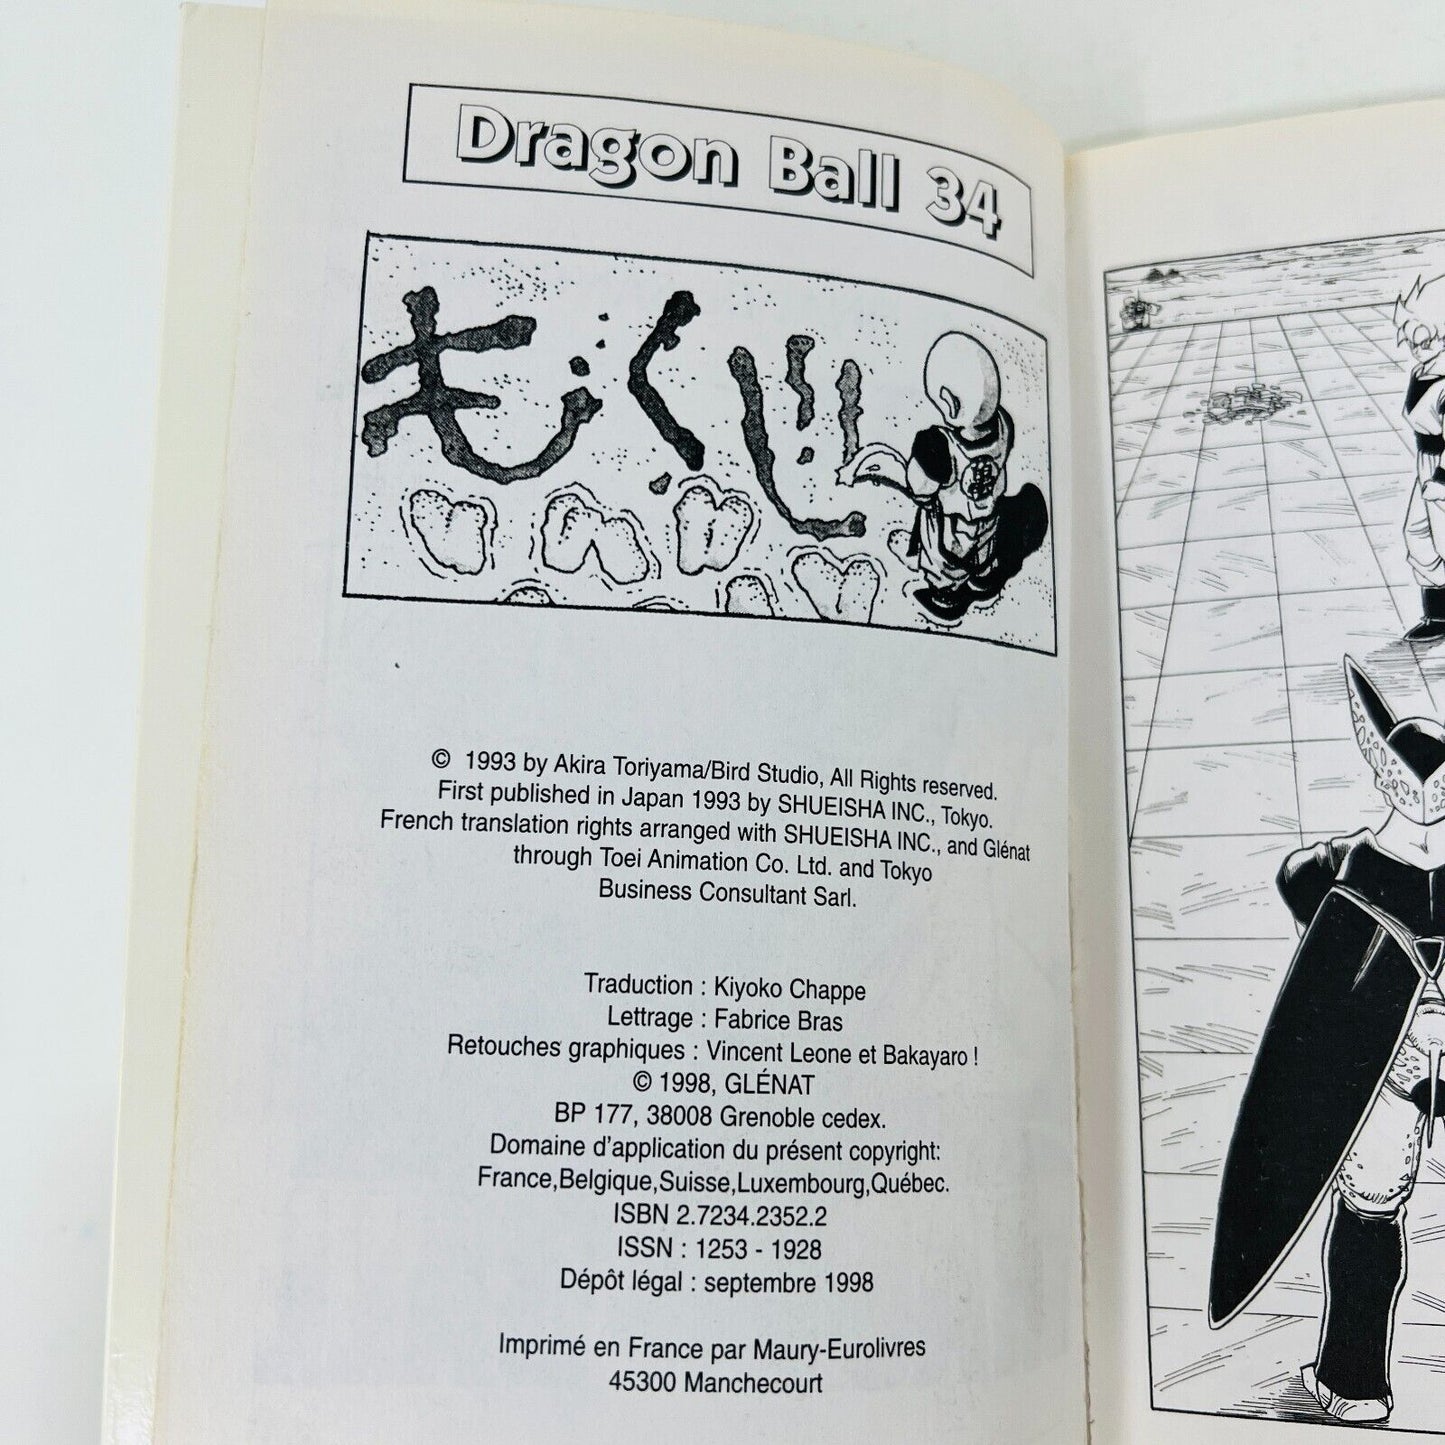 Dragon Ball 34
もくじ
© 1993 by Akira Toriyama/Bird Studio, All Rights reserved.
First published in Japan 1993 by SHUEISHA INC., Tokyo.
French translation rights arranged with SHUEISHA INC., and Glénat
through Toei Animation Co. Ltd. and Tokyo
Business Consultant Sarl.
Traduction : Kiyoko Chappe
Lettrage : Fabrice Bras
Retouches graphiques : Vincent Leone et Bakayaro !
© 1998, GLÉNAT
BP 177, 38008 Grenoble cedex.
Domaine d'application du présent copyright:
France,Belgique,Suisse,Luxembourg,Québec.
ISBN 2.7234.2352.2
ISSN : 1253 - 1928
Dépôt légal : septembre 1998
Imprimé en France par Maury-Eurolivres
45300 Manchecourt